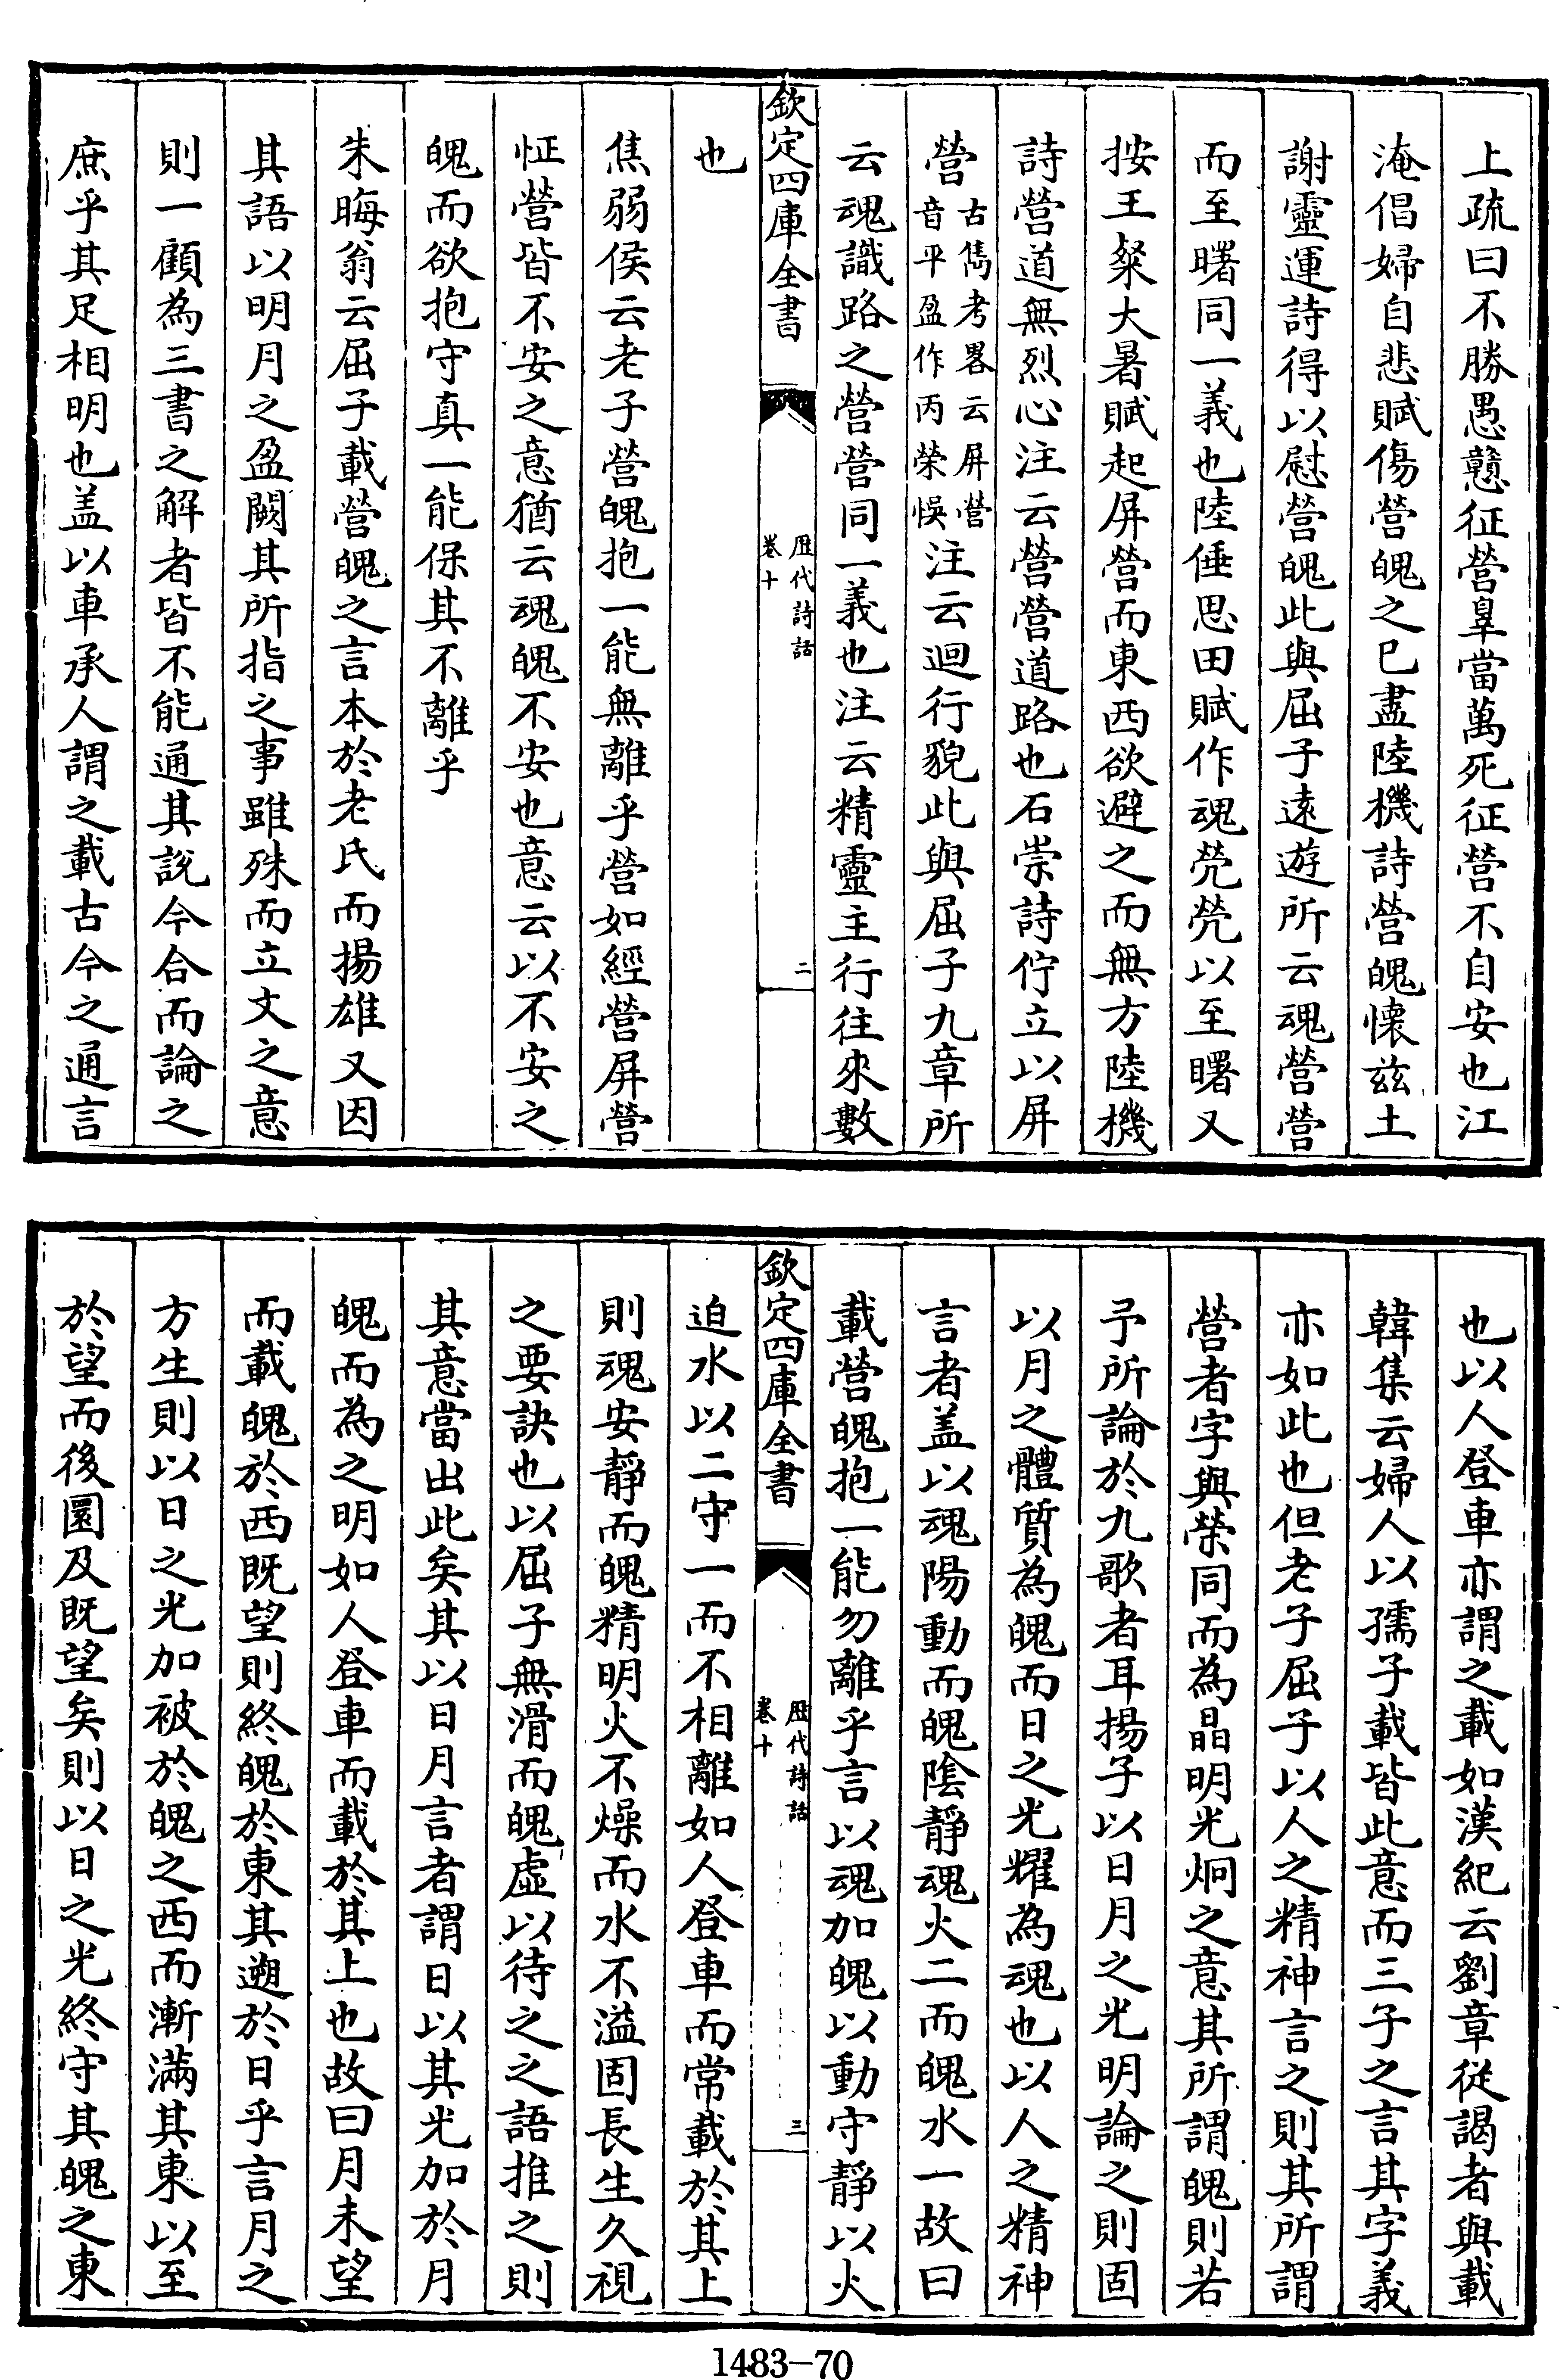 上疏曰不勝愚戇征營辠當萬死征營不自安也江
淹倡婦自悲賦傷營魄之已盡陸機詩營魄懷兹土
謝靈運詩得以慰營魄此與屈子逺遊所云魂營營
而至曙同一義也陸倕思田賦作魂焭焭以至曙又
按王粲大暑賦起屏營而東西欲避之而無方陸機
詩營道無烈心注云營營道路也石崇詩佇立以屏
營古雋考畧云屏營音平盈作丙榮悞注云迴行貌此與屈子九章所
云魂識路之營營同一義也注云精靈主行往來數
欽定四庫全書
歴代詩話
卷十
二
也
焦弱侯云老子營魄抱一能無離乎營如經營屏營
怔營皆不安之意猶云魂魄不安也意云以不安之
魄而欲抱守真一能保其不離乎
朱晦翁云屈子載營魄之言本於老氏而揚雄又因
其語以明月之盈闕其所指之事雖殊而立文之意
則一顧為三書之解者皆不能通其說今合而論之
庶乎其足相明也盖以車承人謂之載古今之通言
也以人登車亦謂之載如漢紀云劉章從謁者與載
韓集云婦人以孺子載皆此意而三子之言其字義
亦如此也但老子屈子以人之精神言之則其所謂
營者字與榮同而為晶明光炯之意其所謂魄則若
予所論於九歌者耳揚子以日月之光明論之則固
以月之體質為魄而日之光耀為魂也以人之精神
言者盖以魂陽動而魄隂靜魂火二而魄水一故曰
載營魄抱一能勿離乎言以魂加魄以動守靜以火
欽定四庫全書
歴代詩話
卷十
三
迫水以二守一而不相離如人登車而常載於其上
則魂安靜而魄精明火不燥而水不溢固長生久視
之要訣也以屈子無滑而魄虚以待之之語推之則
其意當出此矣其以日月言者謂日以其光加於月
魄而為之明如人登車而載於其上也故曰月未望
而載魄於西既望則終魄於東其遡於日乎言月之
方生則以日之光加被於魄之西而漸滿其東以至
於望而後圜及既望矣則以日之光終守其魄之東
1483-70